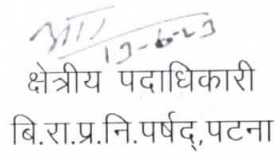 19-6-23
क्षेत्रीय पदाधिकारी
बि.रा.प्र.नि.पर्षद्,पटना